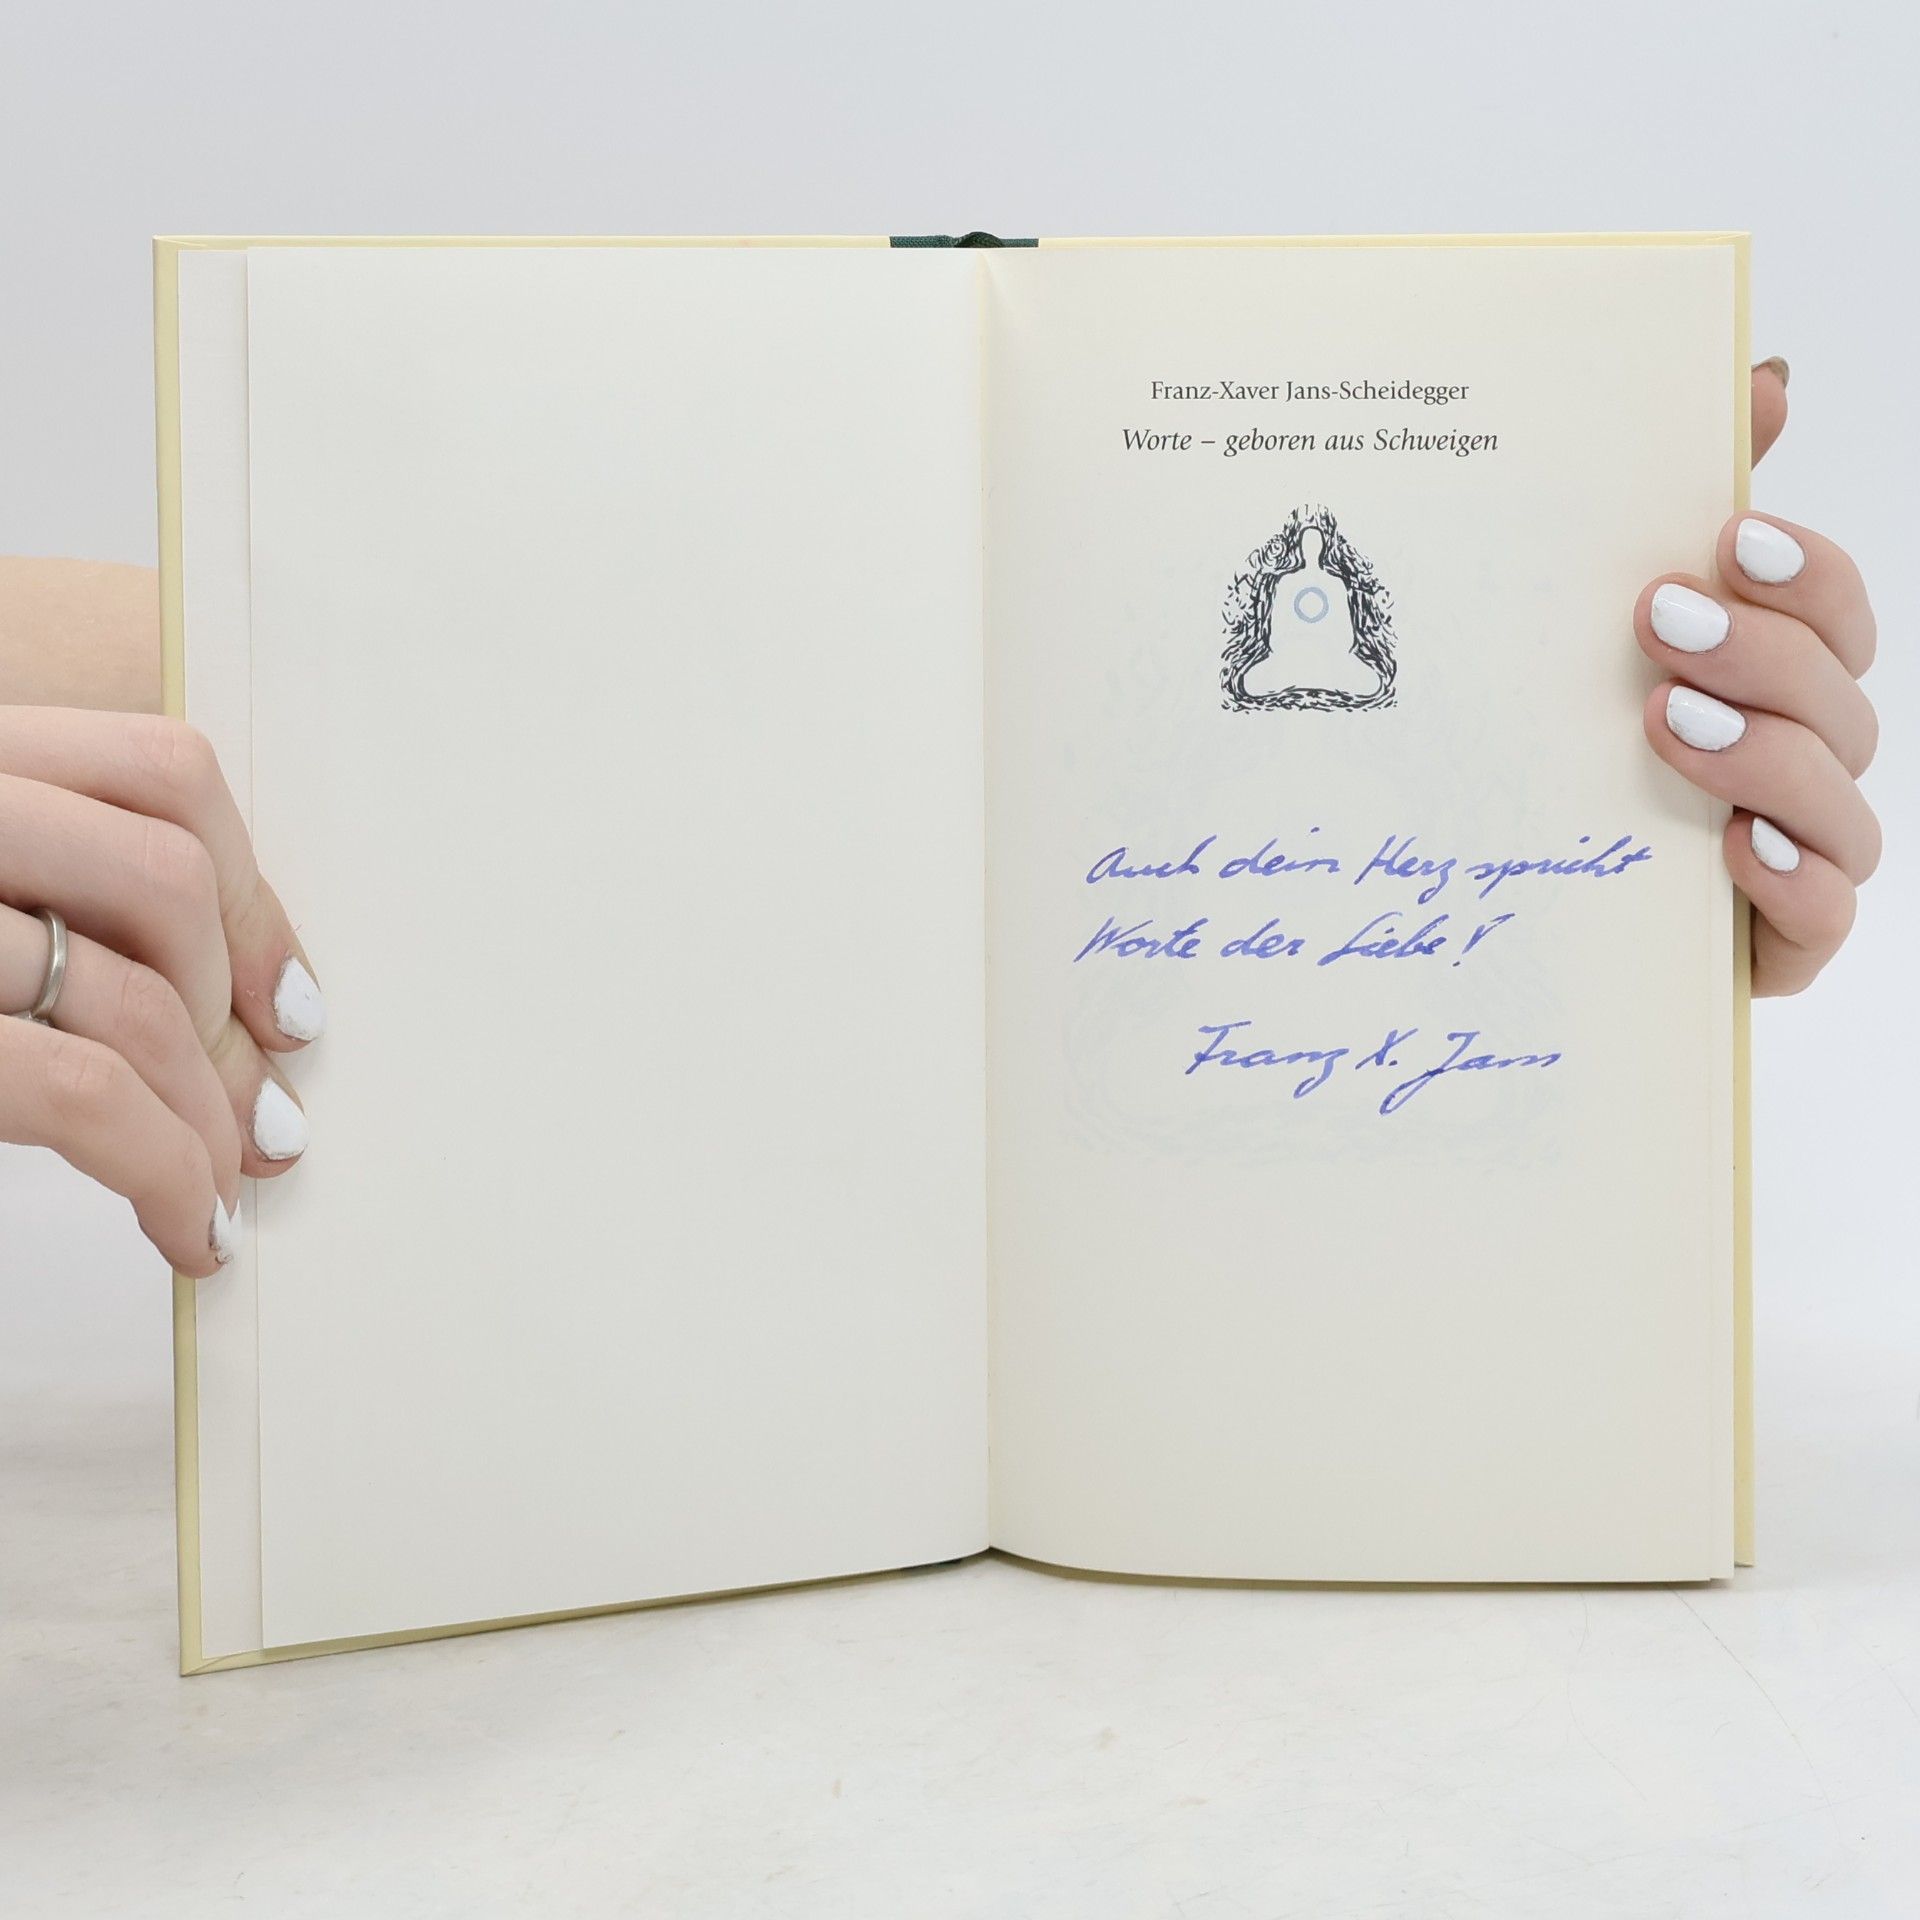 Franz-Xaver Jans-Scheidegger
Worte – geboren aus Schweigen
Auch dein Herz spricht
Worte der Liebe!
Franz X. Jans